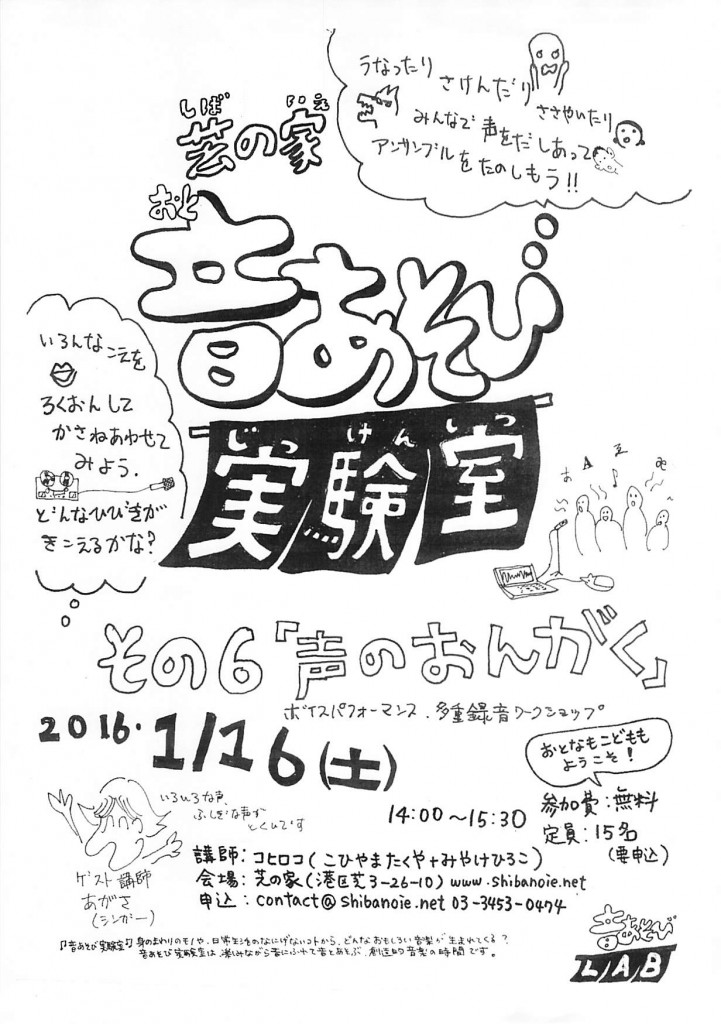 うなったり
さけんだり
ささやいたり
みんなで声をだしあって
アンサンブルをたのしもう!!
しば いえ
芸の家
おと
音あそび
じっ けん しつ
実験室
いろんなこえを
ろくおんして
かさねあわせて
みよう.
どんなひびきが
きこえるかな?
あ A
その6「声のおんがく」
ボイスパフォーマンス.多重録音ワークショップ
2016. 1/16(土)
14:00〜15:30
おとなもこどもも
ようこそ!
参加費:無料
定員:15名
(要申込)
いろいろな声,
ふしぎな声が
とくいです
ゲスト講師
あがさ
(シンガー)
講師:コヒロコ(こひやまたくや+みやけひろこ)
会場:芝の家(港区芝3-26-10) www.shibanoie.net
申込:contact@shibanoie.net 03-3453-0474
『音あそび実験室』身のまわりのモノや、日常生活のなにげないコトから、どんなおもしろい音楽が生まれてくる?
音あそび実験室は、楽しみながら音にふれて音とあそぶ、創造的音楽の時間です。
音あそび
LAB